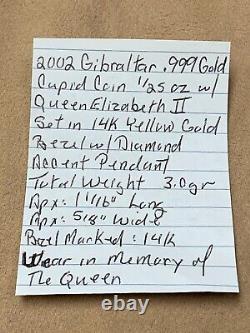 2002 Gibraltar .999 Gold
Cupid Coin 1/25 oz w/
Queen Elizabeth II
Set in 14K Yellow Gold
Bezel w/ Diamond
Accent Pendant
Total Weight 3.0gr
Apx: 1 1/16" Long
Apx: 5/8" Wide
Bezel Marked: 14K
Wear in memory of
The Queen